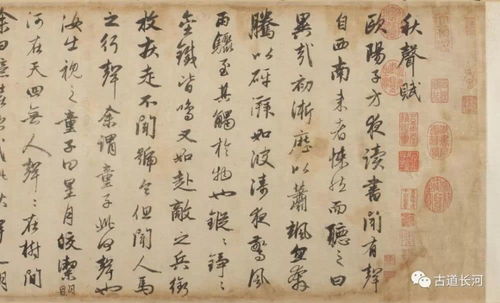 秋聲賦
歐陽子方夜讀書聞有聲
自西南来者悚然而聽之曰
異哉初淅瀝以蕭颯忽奔
騰以砰湃如波濤夜驚風
雨驟至其觸於物也鏦〻錚〻
金鐵皆鳴又如赴敵之兵銜
枚疾走不聞號令但聞人馬
之行聲余謂童子此何聲也
汝出視之童子曰星月皎潔明
河在天四無人聲〻在樹間
余曰噫嘻
古道长河